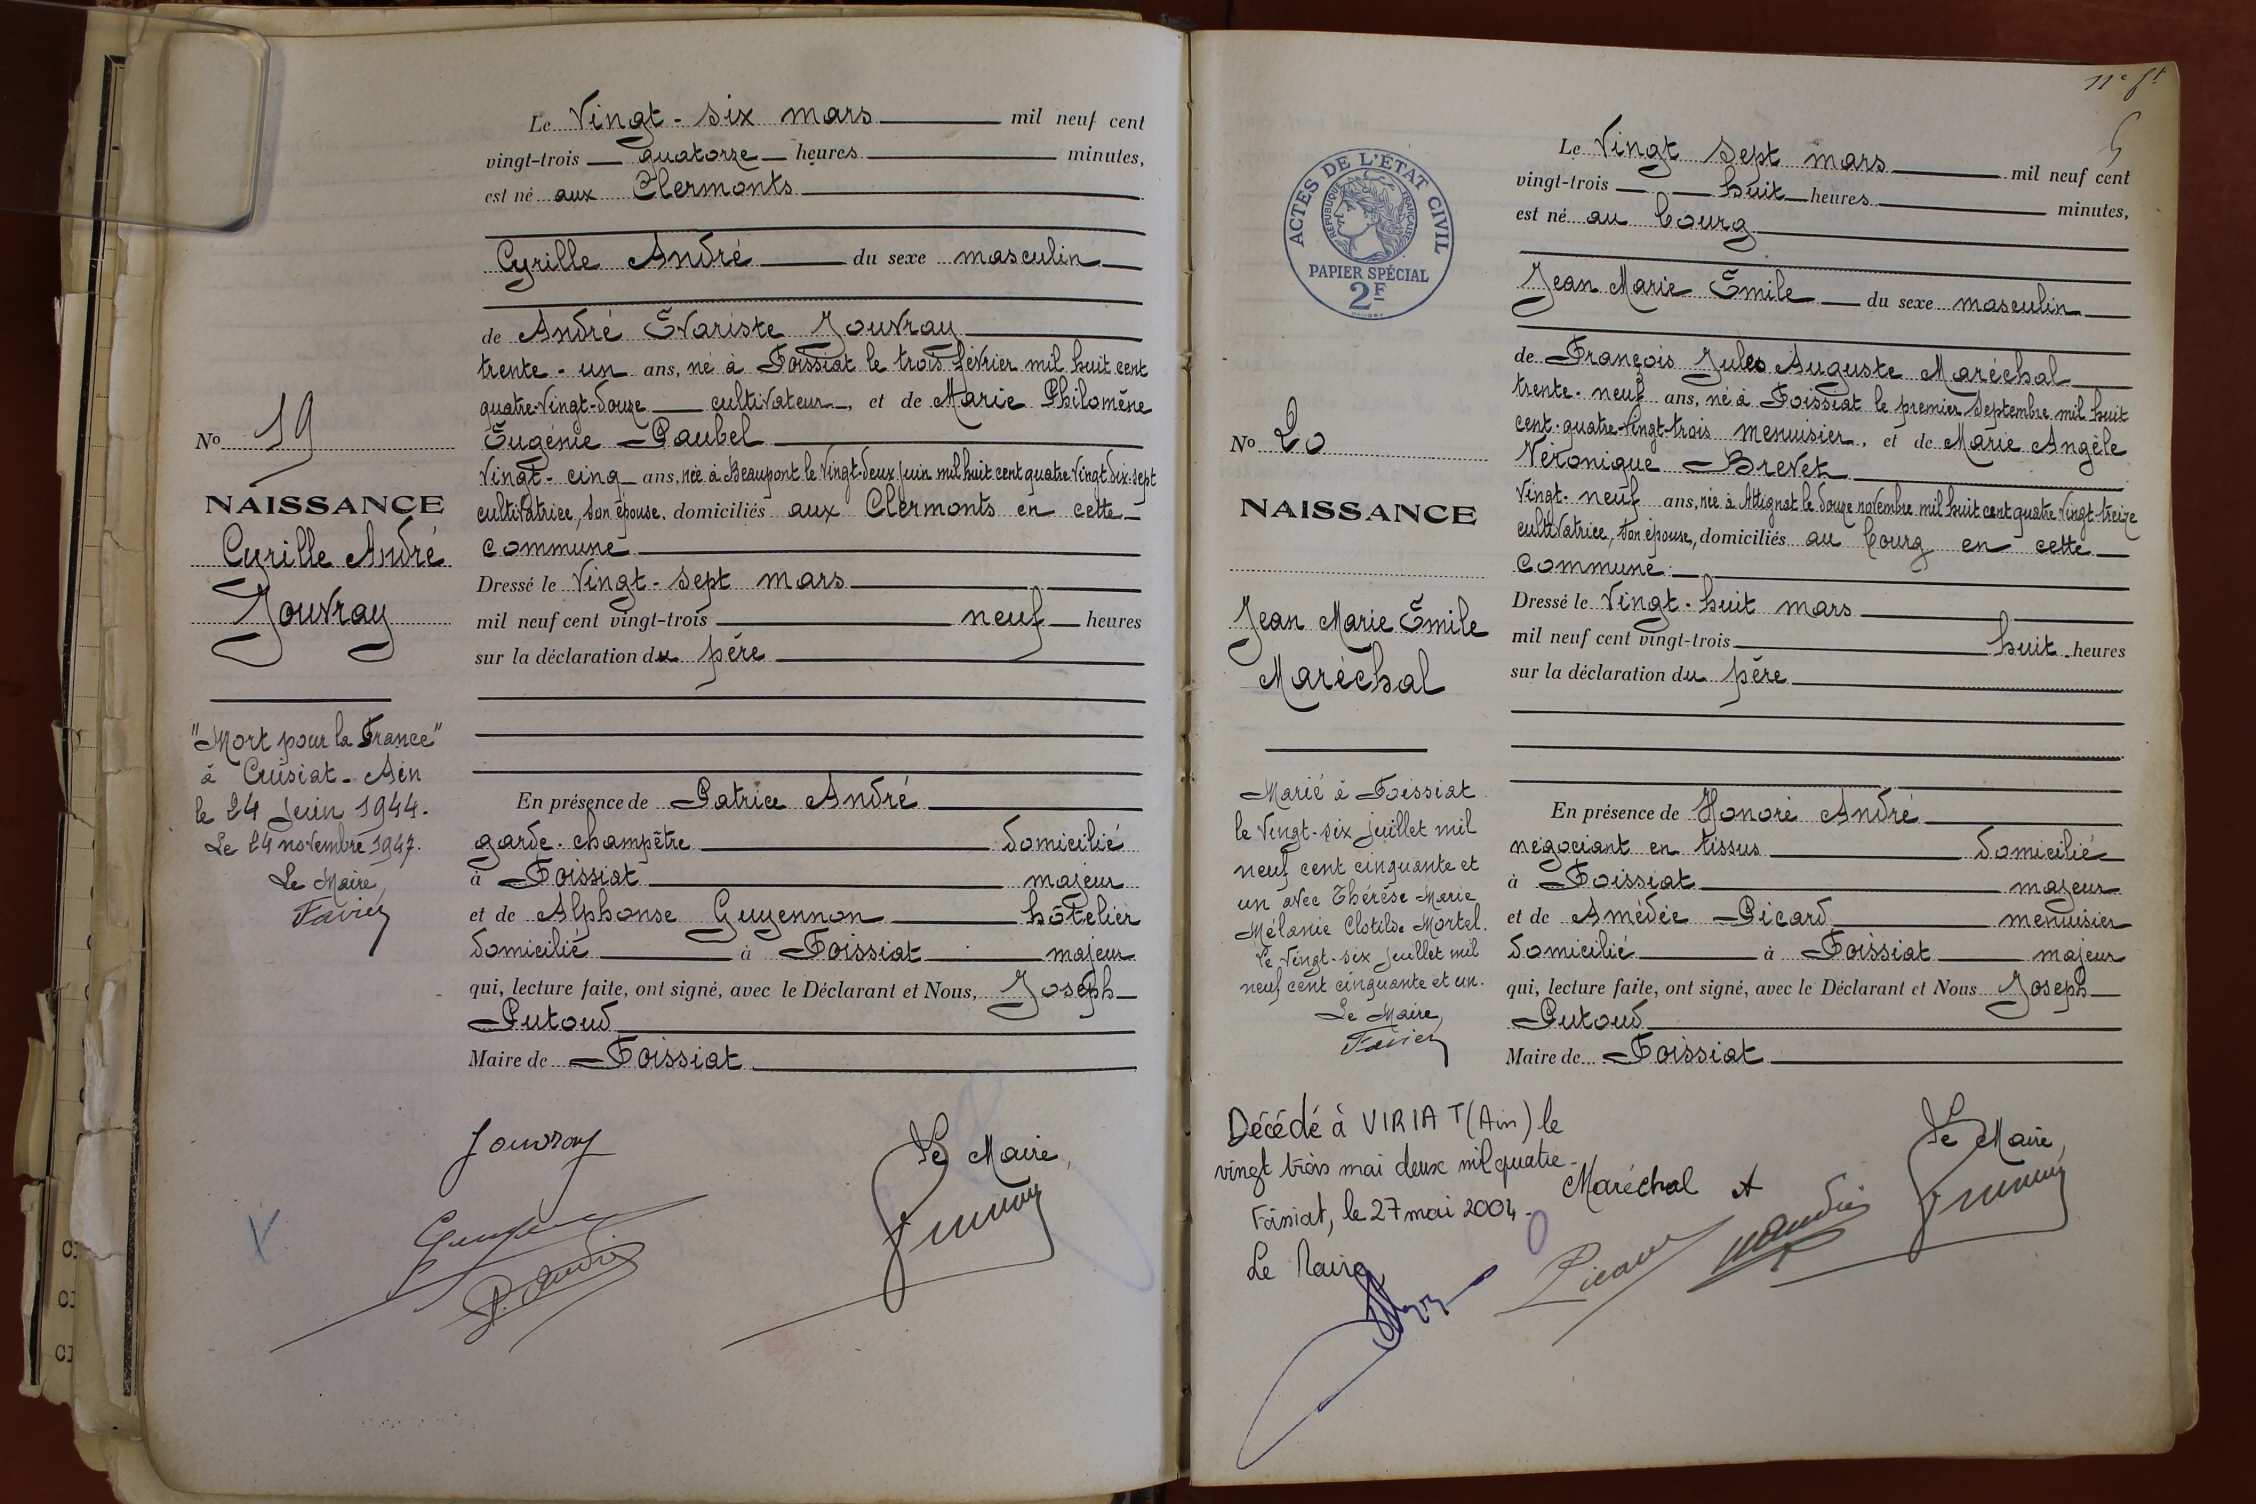 Le Vingt-six mars mil neuf cent
vingt-trois quatorze heures minutes,
est né aux Clermonts
Cyrille André du sexe masculin
de André Évariste Jouvray
trente-un ans, né à Foissiat le trois février mil huit cent
quatre-vingt-douze cultivateur, et de Marie Philomène
Eugénie Paubel
Vingt-cinq ans, née à Beaupont le Vingt-deux juin mil huit cent quatre Vingt dix-sept
cultivatrice, son épouse, domiciliés aux Clermonts en cette
commune
Dressé le Vingt-sept mars
mil neuf cent vingt-trois neuf heures
sur la déclaration du père
En présence de Patrice André
garde-champêtre domicilié
à Foissiat majeur
et de Alphonse Guyennon hôtelier
domicilié à Foissiat majeur
qui, lecture faite, ont signé, avec le Déclarant et Nous, Joseph
Putoud
Maire de Foissiat
Jouvray
Le Maire,
P. André
No 19
NAISSANCE
Cyrille André
Jouvray
"Mort pour la France"
à Cuisiat-Ain
le 24 Juin 1944.
Le 24 novembre 1947.
Le Maire,
Favier
11e ft
5
ACTES DE L'ÉTAT CIVIL
RÉPUBLIQUE FRANÇAISE
PAPIER SPÉCIAL
2F
Le Vingt sept mars mil neuf cent
vingt-trois huit heures minutes,
est né au bourg
Jean Marie Émile du sexe masculin
de François Jules Auguste Maréchal
trente-neuf ans, né à Foissiat le premier Septembre mil huit
cent-quatre-vingt-trois menuisier, et de Marie Angèle
Véronique Brevet
Vingt-neuf ans, née à Attignat le douze novembre mil huit cent quatre Vingt-treize
cultivatrice, son épouse, domiciliés au bourg en cette
commune
Dressé le Vingt-huit mars
mil neuf cent vingt-trois huit heures
sur la déclaration du père
En présence de Honoré André
négociant en tissus domicilié
à Foissiat majeur
et de Amédée Picard menuisier
domicilié à Foissiat majeur
qui, lecture faite, ont signé, avec le Déclarant et Nous Joseph
Putoud
Maire de Foissiat
No 20
NAISSANCE
Jean Marie Émile
Maréchal
Marié à Foissiat
le Vingt-six juillet mil
neuf cent cinquante et
un avec Thérèse Marie
Mélanie Clotilde Mortel.
Le Vingt-six juillet mil
neuf cent cinquante et un.
Le Maire,
Favier
Décédé à VIRIAT (Ain) le
vingt trois mai deux mil quatre-
Foissiat, le 27 mai 2004-
Le Maire,
Maréchal A
Le Maire,
Picard